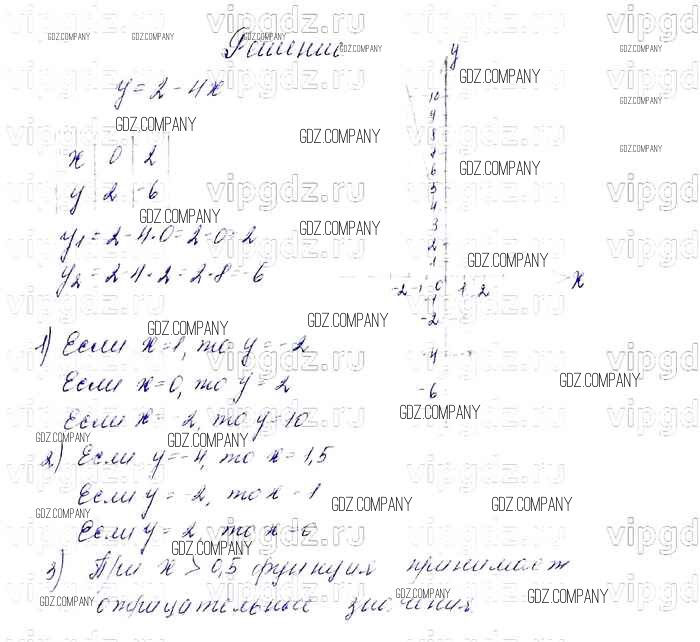 Решение
y = 2 - 4x
x 0 2
y 2 -6
y1 = 2 - 4·0 = 2 - 0 = 2
y2 = 2 - 4·2 = 2 - 8 = -6
1) Если x = 1, то y = -2
Если x = 0, то y = 2
Если x = -2, то y = 10
2) Если y = -4, то x = 1,5
Если y = -2, то x = 1
Если y = 2, то x = 0
3) При x > 0,5 функция принимает
отрицательные значения
y
10
9
8
7
6
5
4
3
2
1
-2 -1 0 1 2 x
-1
-2
-4
-6
vipgdz.ru
GDZ.COMPANY